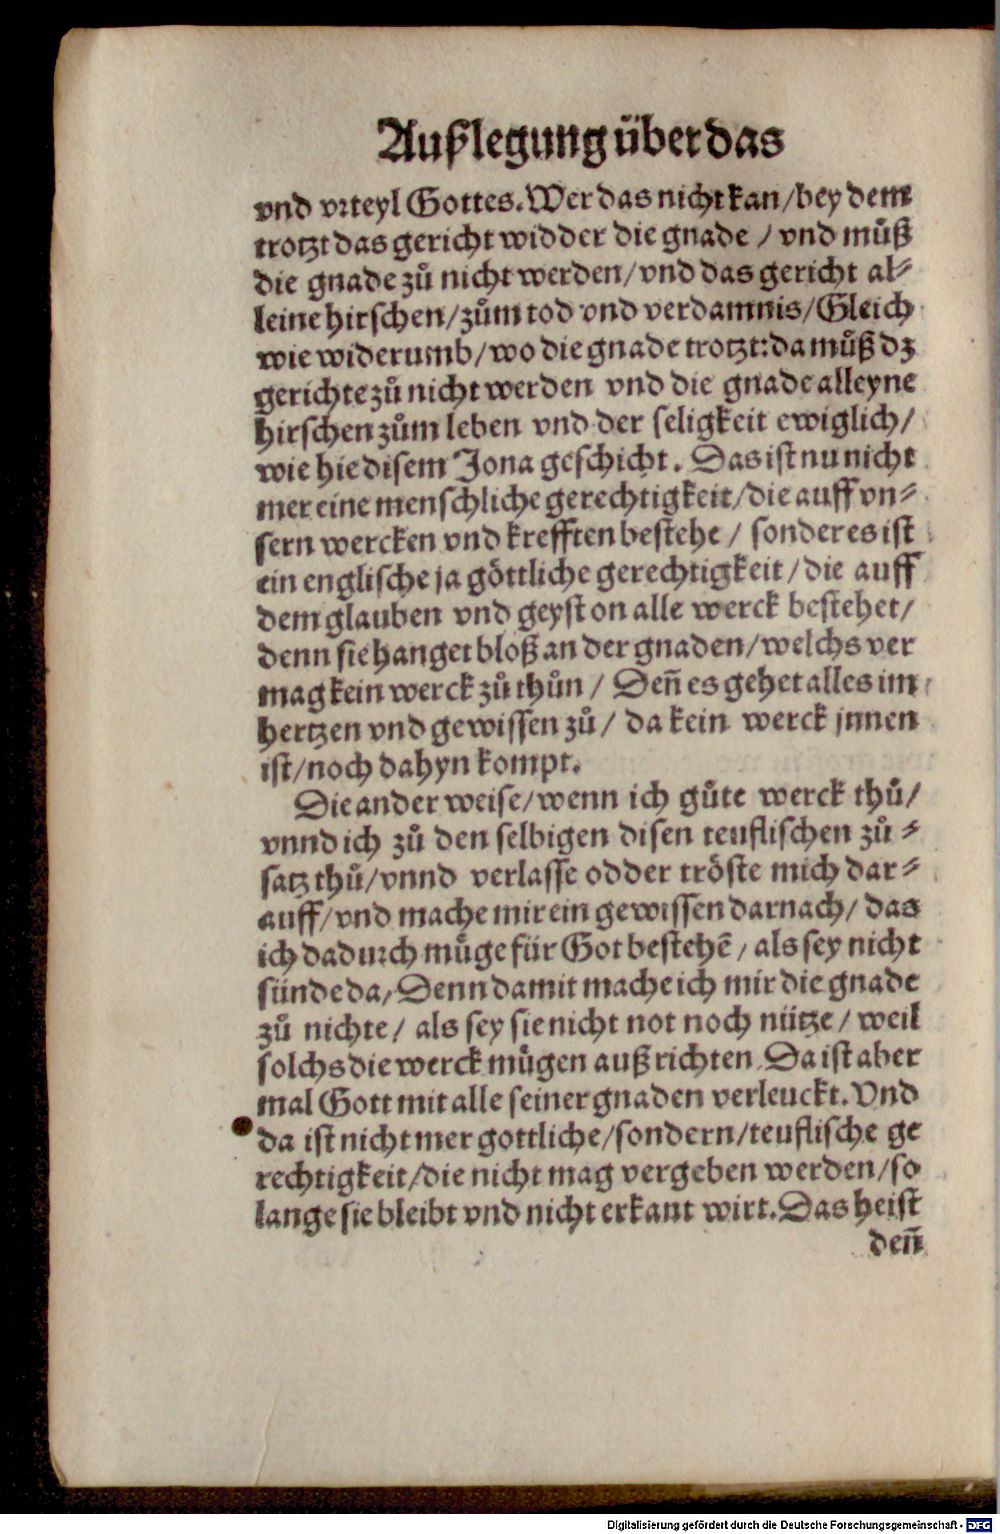 Außlegung über das
vnd vrteyl Gottes. Wer das nicht kan/bey dem
trotzt das gericht widder die gnade / vnd muͦß
die gnade zuͦ nicht werden/vnd das gericht al⸗
leine hirschen/zuͦm tod vnd verdamnis/Gleich
wie widerumb/wo die gnade trotzt:da muͦß dz
gerichte zuͦ nicht werden vnd die gnade alleyne
hirschen zuͦm leben vnd der seligkeit ewiglich/
wie hie disem Jona geschicht. Das ist nu nicht
mer eine menschliche gerechtigkeit/die auff vn⸗
sern wercken vnd krefften bestehe / sonder es ist
ein englische ja göttliche gerechtigkeit/die auff
dem glauben vnd geyst on alle werck bestehet/
denn sie hanget bloß an der gnaden/welchs ver
mag kein werck zuͦ thuͦn / Deñ es gehet alles im
hertzen vnd gewissen zuͦ/ da kein werck jnnen
ist/noch dahyn kompt.
Die ander weise/wenn ich guͦte werck thuͦ/
vnnd ich zuͦ den selbigen disen teuflischen zuͦ ⸗
satz thuͦ/vnnd verlasse odder tröste mich dar⸗
auff/vnd mache mir ein gewissen darnach/ das
ich dadurch müge für Got bestehē/ als sey nicht
sünde da/Denn damit mache ich mir die gnade
zuͦ nichte/ als sey sie nicht not noch nütze/ weil
solchs die werck mügen auß richten. Da ist aber
mal Gott mit alle seiner gnaden verleuckt. Vnd
da ist nicht mer gottliche/sondern/teuflische ge
rechtigkeit/die nicht mag vergeben werden/so
lange sie bleibt vnd nicht erkant wirt. Das heist
deñ
Digitalisierung gefördert durch die Deutsche Forschungsgemeinschaft - DFG